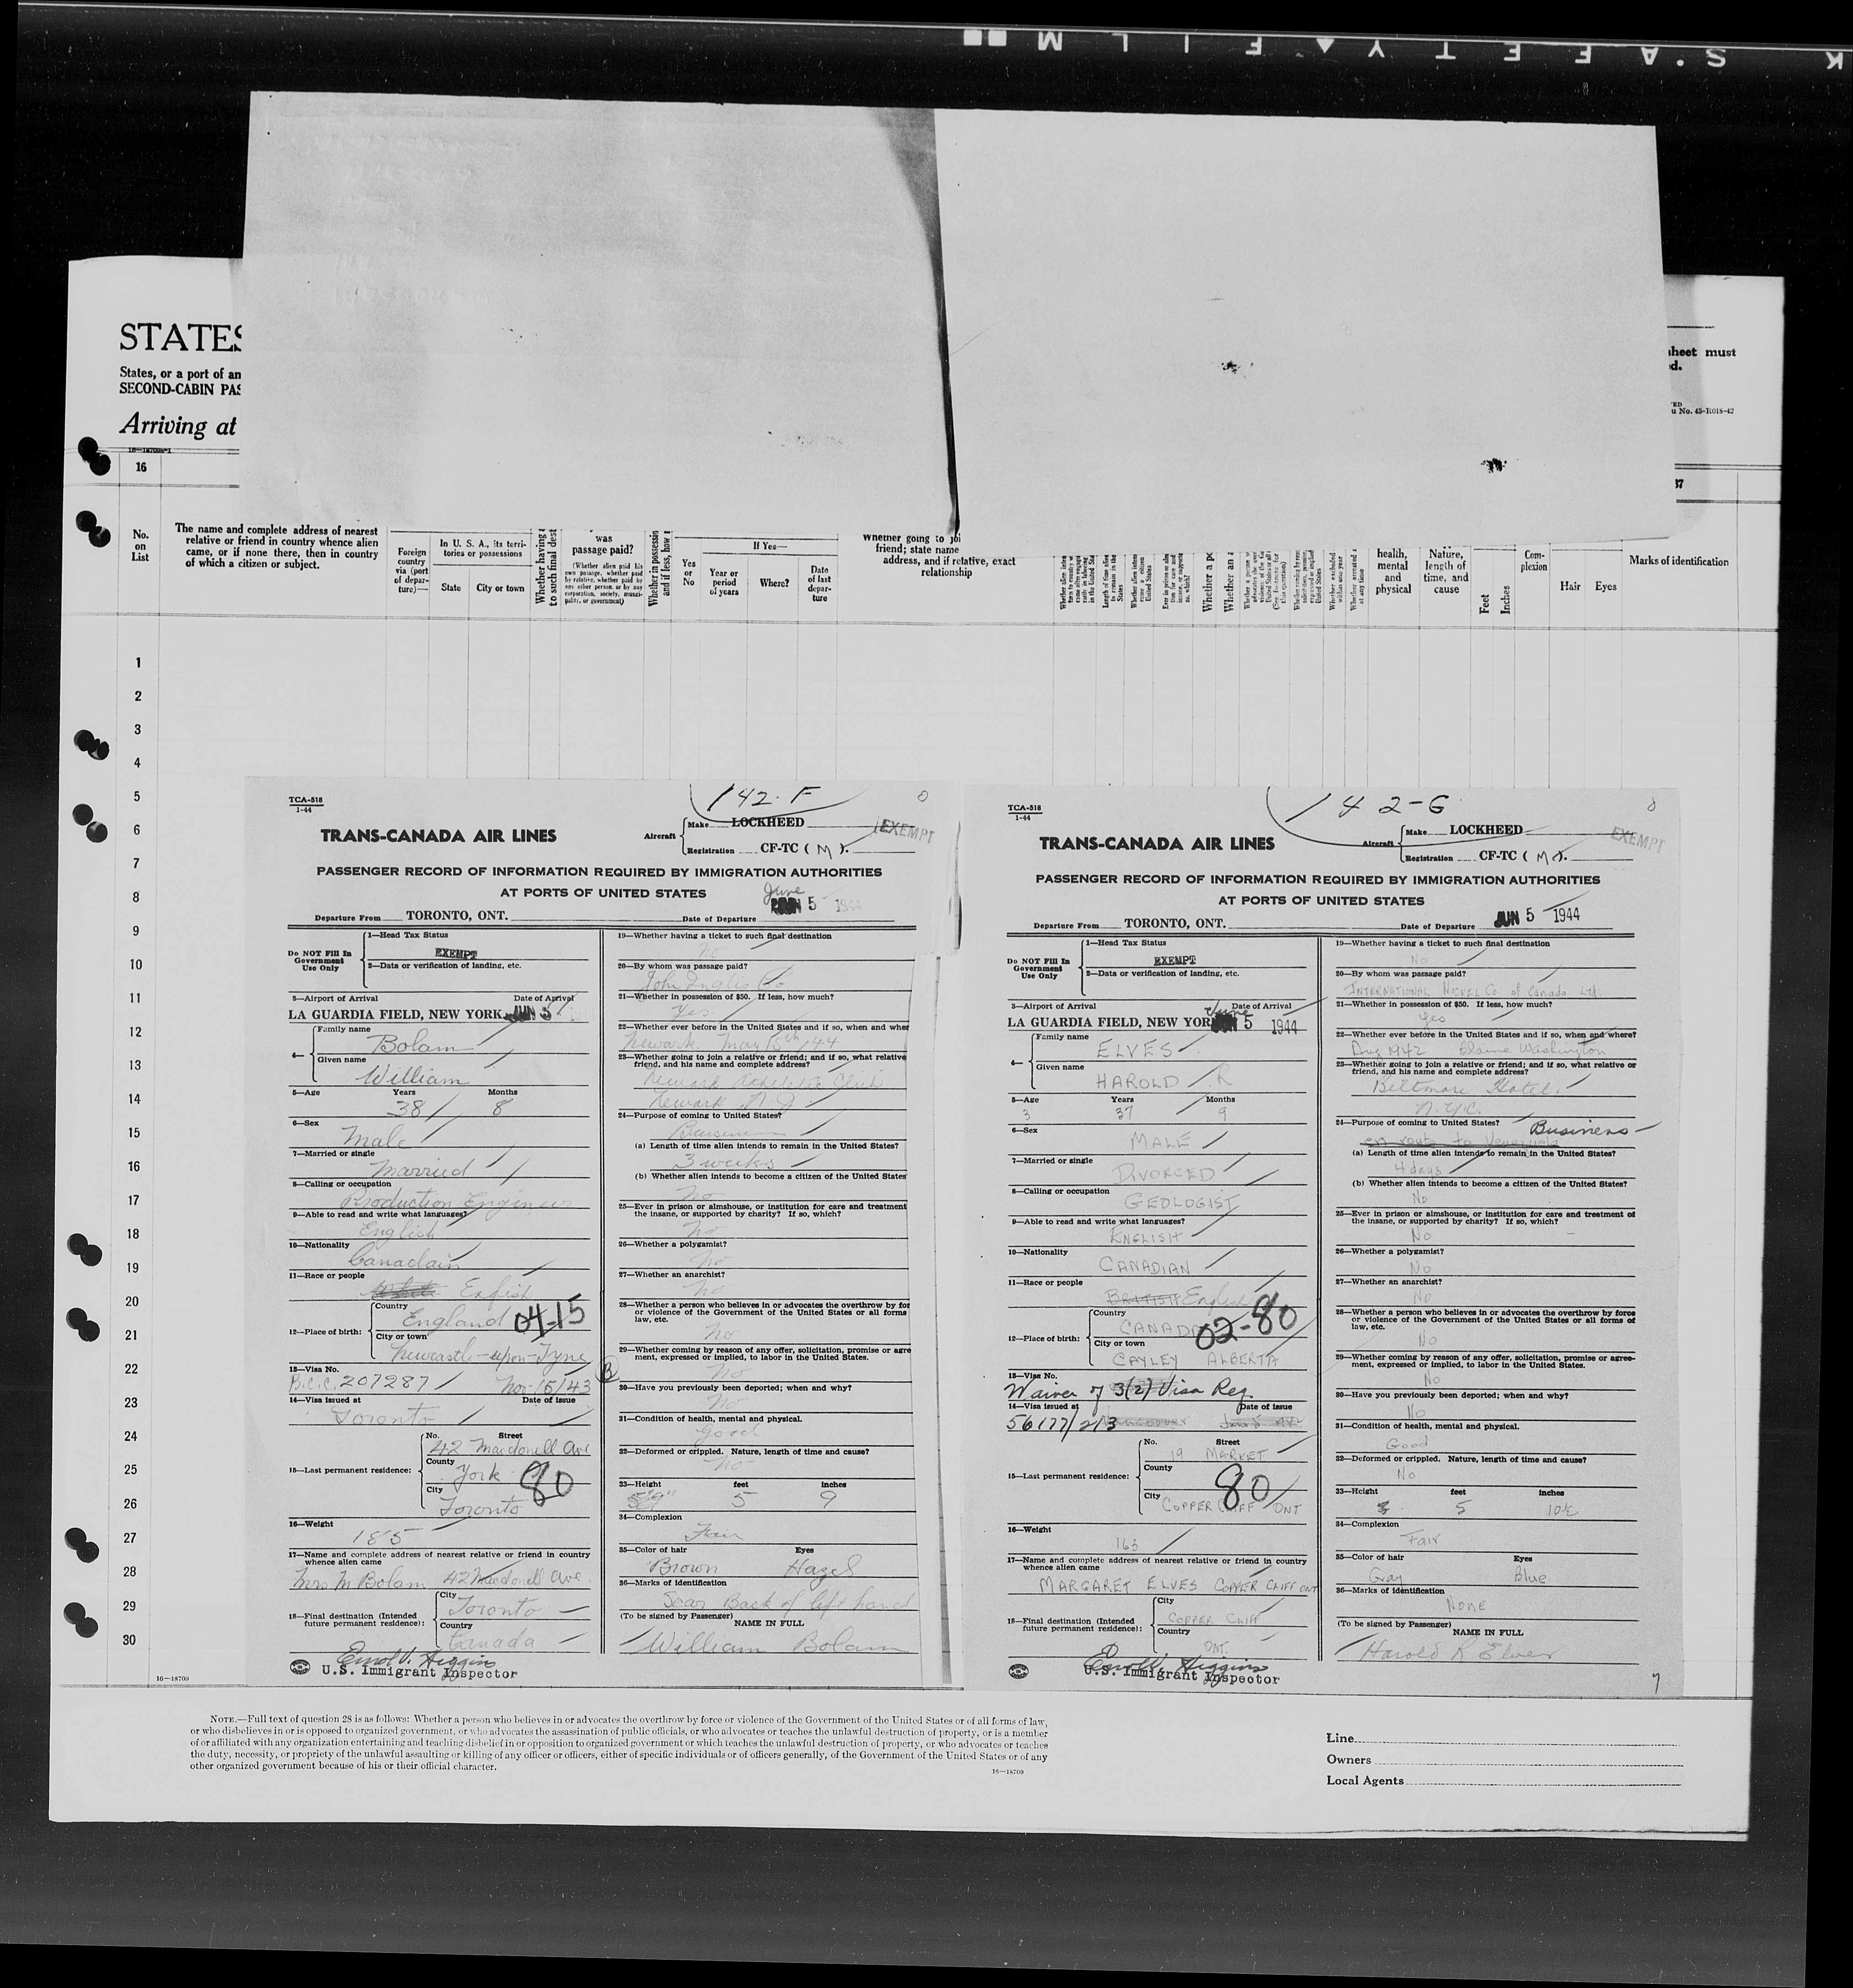 K S.A F E T Y ▲ F I L M ■■
STATES
States, or a port of an
SECOND-CABIN PAS
Arriving at
sheet must
d.
u No. 43-R018-42
16
37
No. on List
The name and complete address of nearest
relative or friend in country whence alien
came, or if none there, then in country
of which a citizen or subject.
Foreign country via (port of departure)—
In U. S. A., its terri-
tories or possessions
State
City or town
Whether having a
to such final dest
was
passage paid?
(Whether alien paid his
own passage, whether paid
by relative, whether paid by
any other person, or by any
corporation, society, munici-
pality, or government)
Whether in possessio
and if less, how
Yes or No
If Yes—
Year or period of years
Where?
Date of last depar-ture
Whether going to joi
friend; state name
address, and if relative, exact
relationship
health,
mental
and
physical
Nature,
length of
time, and
cause
Feet
Inches
Com-
plexion
Hair
Eyes
Marks of identification
1
2
3
4
5
6
7
8
9
10
11
12
13
14
15
16
17
18
19
20
21
22
23
24
25
26
27
28
29
30
TCA-518
1-44
142-F
TRANS-CANADA AIR LINES
Aircraft
Make LOCKHEED
Registration CF-TC ( M ).
EXEMPT
PASSENGER RECORD OF INFORMATION REQUIRED BY IMMIGRATION AUTHORITIES
AT PORTS OF UNITED STATES
June
Departure From TORONTO, ONT.
Date of Departure JUN 5 1944
Do NOT Fill In
Government
Use Only
1—Head Tax Status
EXEMPT
2—Data or verification of landing, etc.
3—Airport of Arrival Date of Arrival
LA GUARDIA FIELD, NEW YORK JUN 5
4—
Family name
Bolam
Given name
William
5—Age Years Months
38 8
6—Sex
Male
7—Married or single
Married
8—Calling or occupation
Production Engineer
9—Able to read and write what languages?
English
10—Nationality
Canadian
11—Race or people
White English
12—Place of birth:
Country
England 04-15
City or town
Newcastle-upon-Tyne
13—Visa No.
B.C.C. 207287 Nov 15/43
14—Visa issued at Date of issue
Toronto
15—Last permanent residence:
No. Street
42 Macdonell Ave
County
York 80
City
Toronto
16—Weight
185
17—Name and complete address of nearest relative or friend in country
whence alien came
Mrs M Bolam 42 Macdonell Ave.
18—Final destination (Intended
future permanent residence):
City
Toronto
Country
Canada
Errol V. Higgins
U.S. Immigrant Inspector
19—Whether having a ticket to such final destination
No
20—By whom was passage paid?
John Inglis Co
21—Whether in possession of $50. If less, how much?
Yes
22—Whether ever before in the United States and if so, when and wher
Newark Mar 15th/44
23—Whether going to join a relative or friend; and if so, what relative
friend, and his name and complete address?
Newark Athletic Club
Newark N.J.
24—Purpose of coming to United States?
Business
(a) Length of time alien intends to remain in the United States?
3 weeks
(b) Whether alien intends to become a citizen of the United States
No
25—Ever in prison or almshouse, or institution for care and treatment
the insane, or supported by charity? If so, which?
No
26—Whether a polygamist?
No
27—Whether an anarchist?
No
28—Whether a person who believes in or advocates the overthrow by for
or violence of the Government of the United States or all forms
law, etc.
No
29—Whether coming by reason of any offer, solicitation, promise or agre
ment, expressed or implied, to labor in the United States.
B No
30—Have you previously been deported; when and why?
No
31—Condition of health, mental and physical.
Good
32—Deformed or crippled. Nature, length of time and cause?
No
33—Height feet inches
5'9" 5 9
34—Complexion
Fair
35—Color of hair Eyes
Brown Hazel
36—Marks of identification
Scar Back of left hand
(To be signed by Passenger) NAME IN FULL
William Bolam
TCA-518
1-44
142-G
TRANS-CANADA AIR LINES
Aircraft
Make LOCKHEED
Registration CF-TC ( M ).
EXEMPT
PASSENGER RECORD OF INFORMATION REQUIRED BY IMMIGRATION AUTHORITIES
AT PORTS OF UNITED STATES
Departure From TORONTO, ONT.
Date of Departure JUN 5 1944
Do NOT Fill In
Government
Use Only
1—Head Tax Status
EXEMPT
2—Data or verification of landing, etc.
3—Airport of Arrival Date of Arrival
June
LA GUARDIA FIELD, NEW YORK JUN 5 1944
4—
Family name
ELVES
Given name
HAROLD R
5—Age Years Months
3 37 9
6—Sex
MALE
7—Married or single
DIVORCED
8—Calling or occupation
GEOLOGIST
9—Able to read and write what languages?
ENGLISH
10—Nationality
CANADIAN
11—Race or people
BRITISH English
12—Place of birth:
Country
CANADA 02-80
City or town
CAYLEY ALBERTA
13—Visa No.
Waiver of 3(2) Visa Reg.
14—Visa issued at Date of issue
56177/213 Vancouver
15—Last permanent residence:
No. Street
19 MARKET
County
80
City
COPPER CLIFF ONT
16—Weight
163
17—Name and complete address of nearest relative or friend in country
whence alien came
MARGARET ELVES COPPER CLIFF ONT
18—Final destination (Intended
future permanent residence):
City
COPPER CLIFF
Country
ONT.
Errol V. Higgins
U.S. Immigrant Inspector
19—Whether having a ticket to such final destination
No
20—By whom was passage paid?
INTERNATIONAL NICKEL Co. of Canada Ltd.
21—Whether in possession of $50. If less, how much?
Yes
22—Whether ever before in the United States and if so, when and where?
Aug 1942 Blaine Washington
23—Whether going to join a relative or friend; and if so, what relative or
friend, and his name and complete address?
Biltmore Hotel.
N.Y.C.
24—Purpose of coming to United States? Business
en route to Venezuela
(a) Length of time alien intends to remain in the United States?
4 days
(b) Whether alien intends to become a citizen of the United States?
No
25—Ever in prison or almshouse, or institution for care and treatment of
the insane, or supported by charity? If so, which?
No
26—Whether a polygamist?
No
27—Whether an anarchist?
No
28—Whether a person who believes in or advocates the overthrow by force
or violence of the Government of the United States or all forms of
law, etc.
No
29—Whether coming by reason of any offer, solicitation, promise or agree-
ment, expressed or implied, to labor in the United States.
No
30—Have you previously been deported; when and why?
No
31—Condition of health, mental and physical.
Good
32—Deformed or crippled. Nature, length of time and cause?
No
33—Height feet inches
5 10½
34—Complexion
Fair
35—Color of hair Eyes
Gray Blue
36—Marks of identification
None
(To be signed by Passenger) NAME IN FULL
Harold R Elves
7
16—18709
NOTE.—Full text of question 28 is as follows: Whether a person who believes in or advocates the overthrow by force or violence of the Government of the United States or of all forms of law,
or who disbelieves in or is opposed to organized government, or who advocates the assassination of public officials, or who advocates or teaches the unlawful destruction of property, or is a member
of or affiliated with any organization entertaining and teaching disbelief in or opposition to organized government or which teaches the unlawful destruction of property, or who advocates or teaches
the duty, necessity, or propriety of the unlawful assaulting or killing of any officer or officers, either of specific individuals or of officers generally, of the Government of the United States or of any
other organized government because of his or their official character.
16—18709
Line
Owners
Local Agents